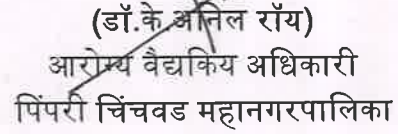 (डॉ.के.अनिल रॉय)
आरोग्य वैद्यकिय अधिकारी
पिंपरी चिंचवड महानगरपालिका